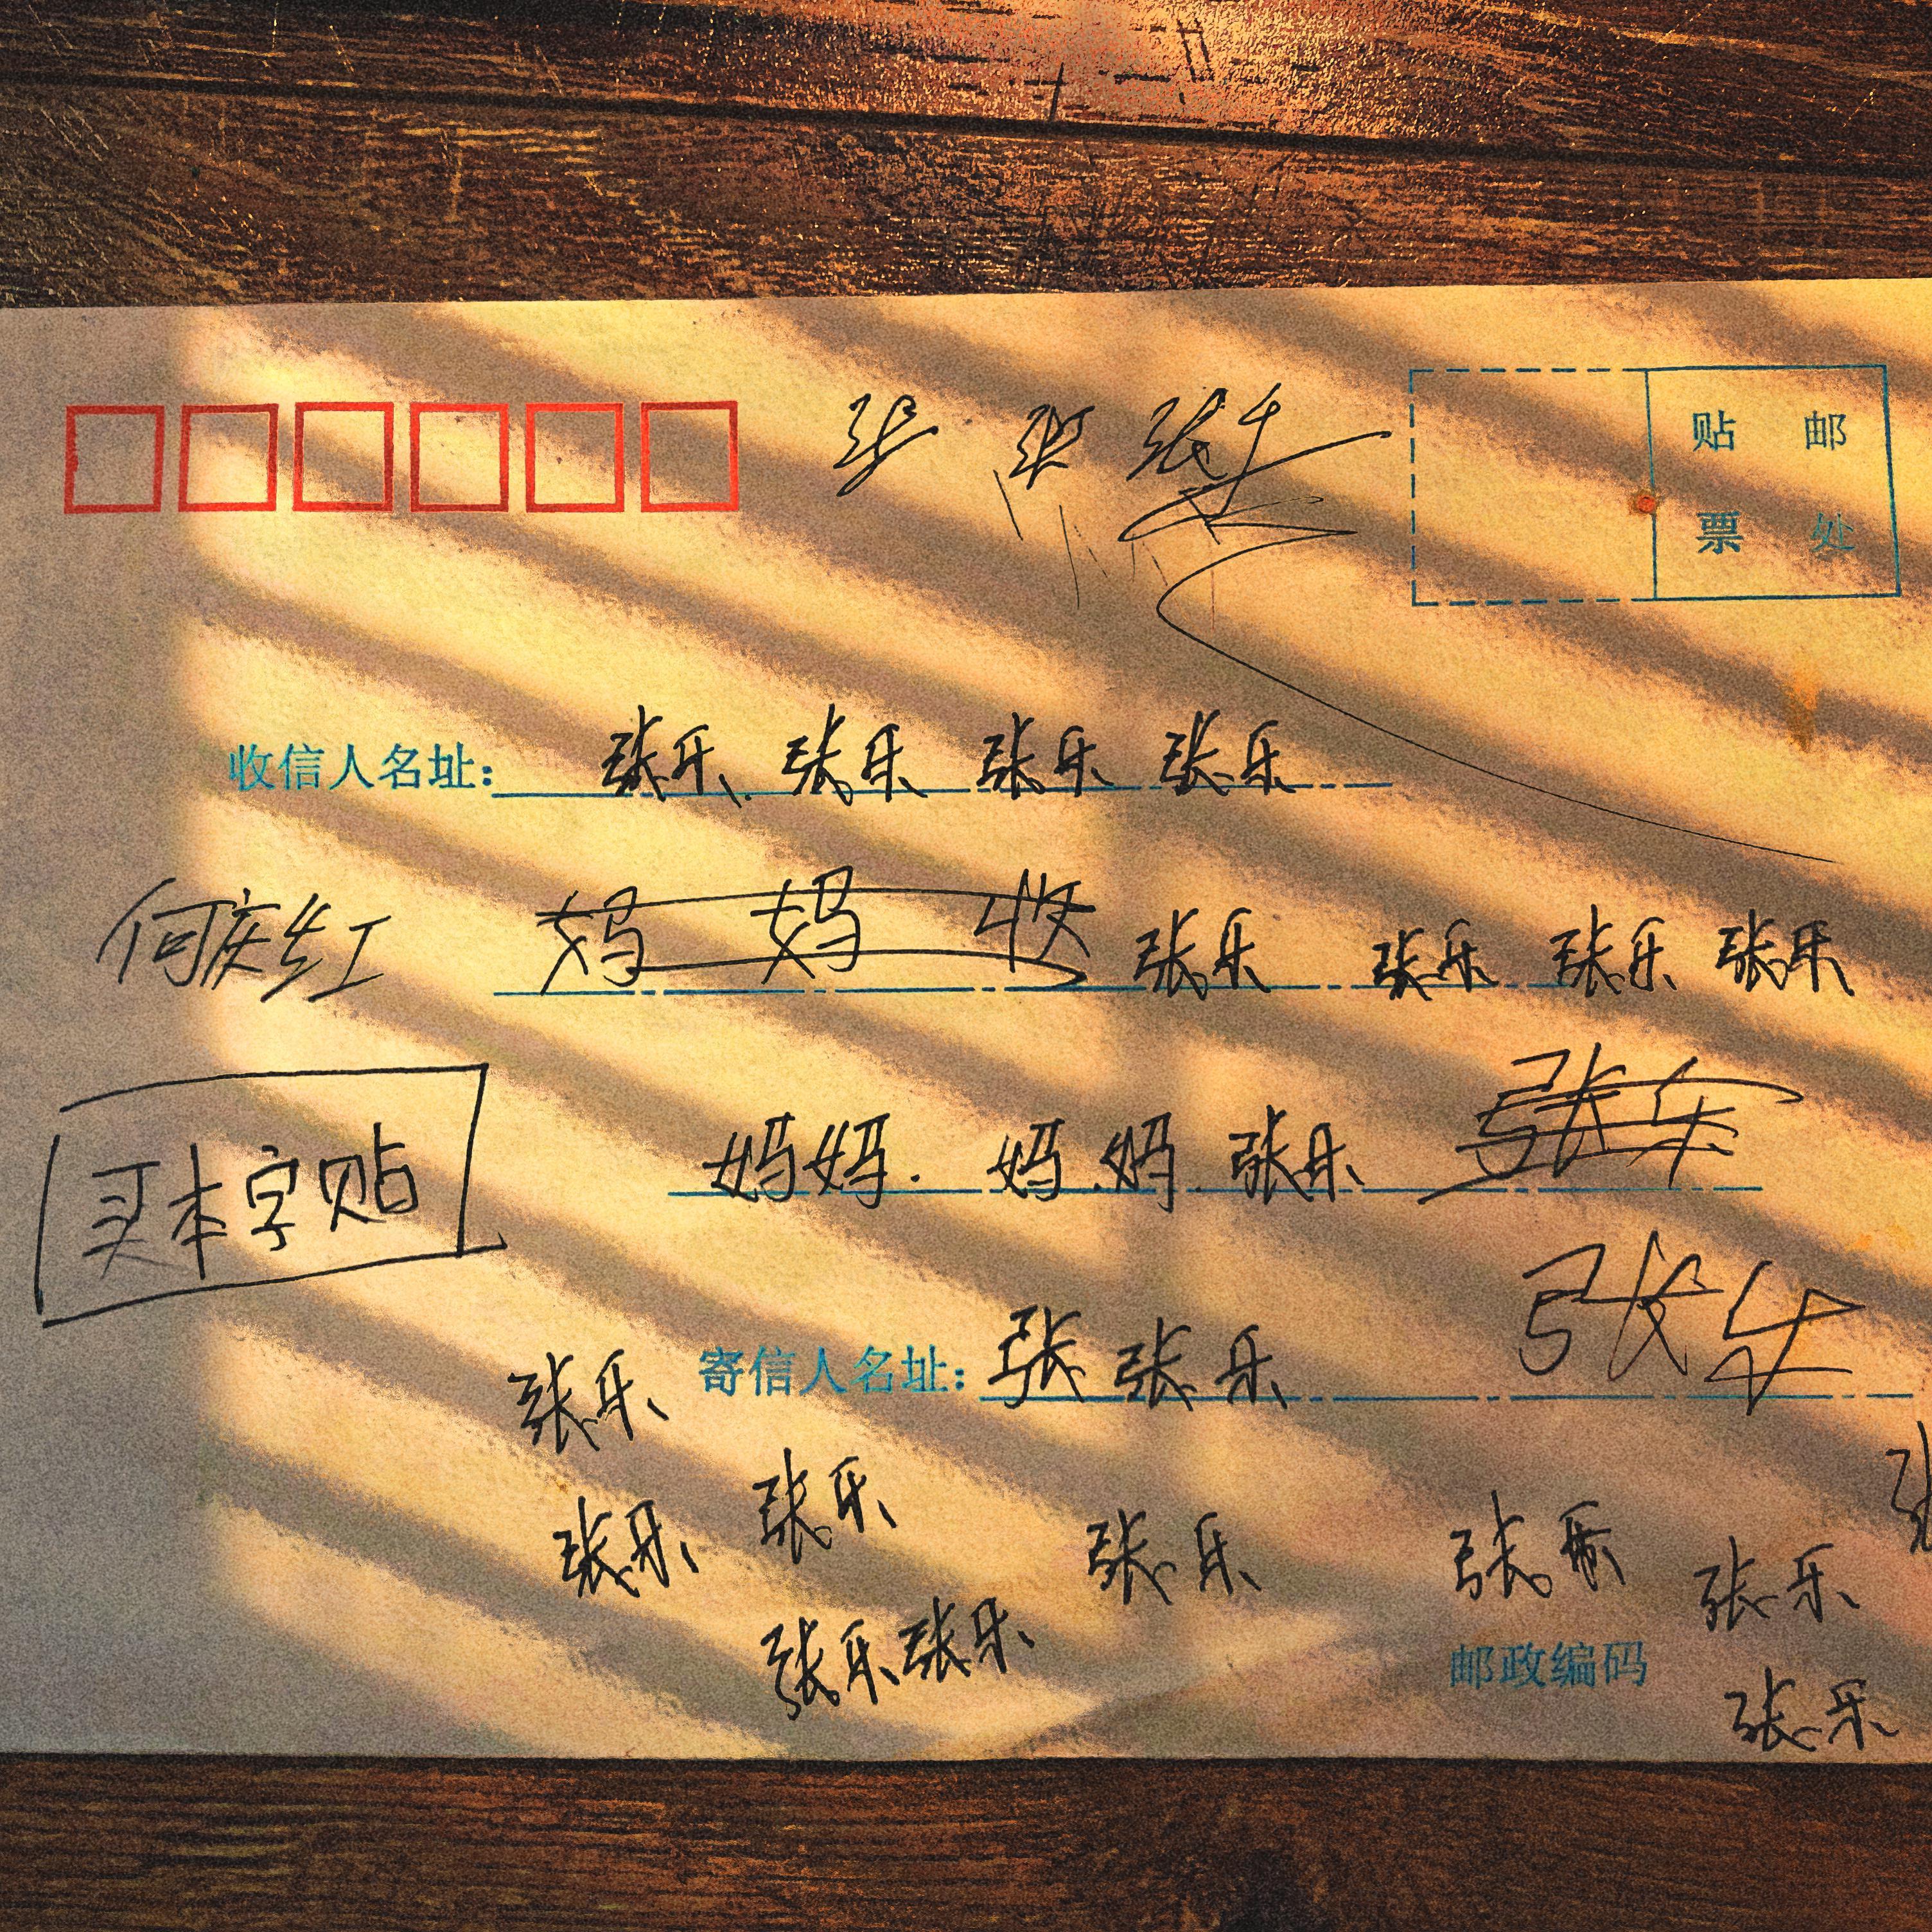 贴 邮
票 处
收信人名址： 张乐 张乐 张乐 张乐
何庆红 妈妈收 张乐 张乐 张乐 张乐
妈妈. 妈妈 张乐 张乐
买本字贴
张乐
寄信人名址： 张 张乐
张乐
张乐 张乐
张乐 张乐 张乐
张乐 张乐
邮政编码
张乐